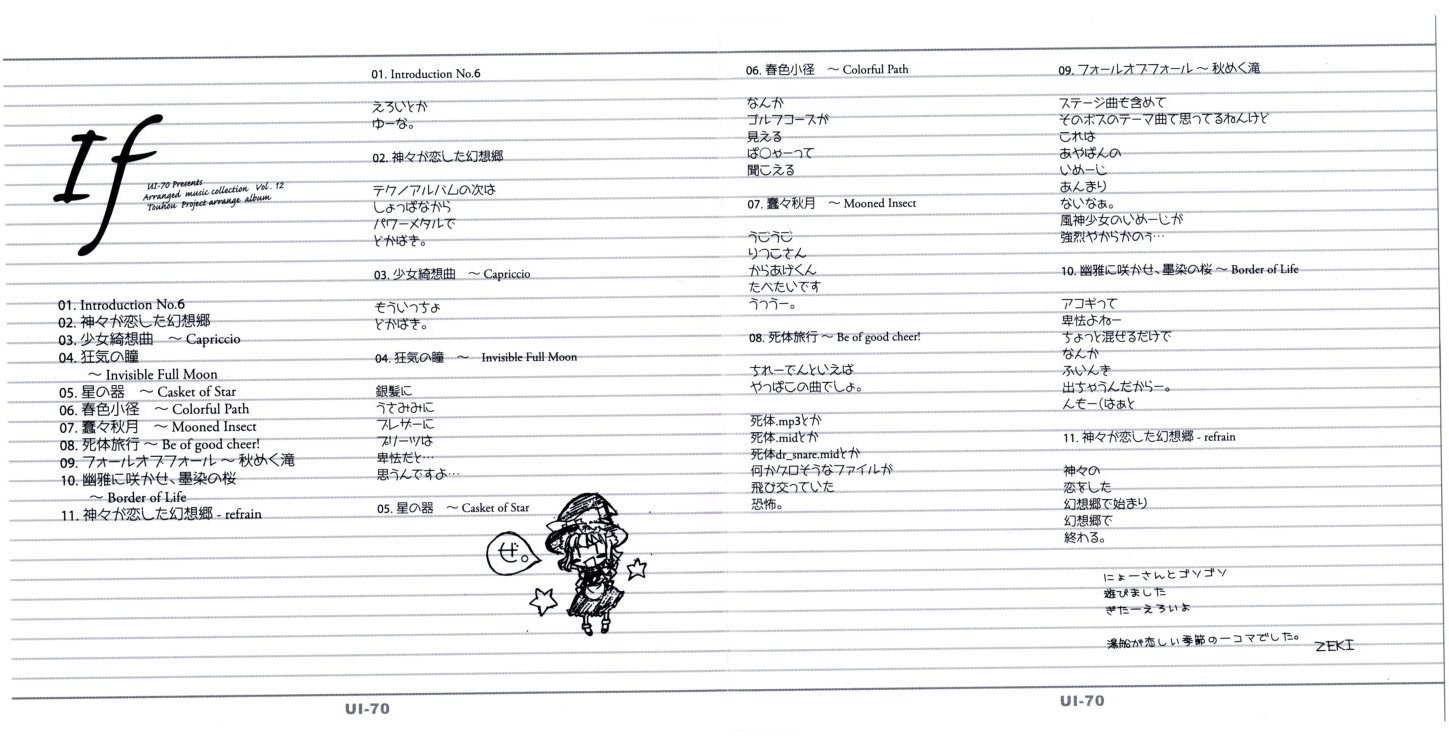 If
UI-70 Presents
Arranged music collection Vol. 12
Touhou Project arrange album
01. Introduction No.6
02. 神々が恋した幻想郷
03. 少女綺想曲　～ Capriccio
04. 狂気の瞳
～ Invisible Full Moon
05. 星の器　～ Casket of Star
06. 春色小径　～ Colorful Path
07. 蠢々秋月　～ Mooned Insect
08. 死体旅行 ～ Be of good cheer!
09. フォールオブフォール ～ 秋めく滝
10. 幽雅に咲かせ、墨染の桜
～ Border of Life
11. 神々が恋した幻想郷 - refrain
01. Introduction No.6
えろいとか
ゆーな。
02. 神々が恋した幻想郷
テクノアルバムの次は
しょっぱなから
パワーメタルで
どかばき。
03. 少女綺想曲　～ Capriccio
もういっちょ
どかばき。
04. 狂気の瞳　～　Invisible Full Moon
銀髪に
うさみみに
ブレザーに
プリーツは
卑怯だと…
思うんですよ…
05. 星の器　～ Casket of Star
ぜ。
UI-70
06. 春色小径　～ Colorful Path
なんか
ゴルフコースが
見える
ぱ○ゃーって
聞こえる
07. 蠢々秋月　～ Mooned Insect
うごうご
りつこさん
からあげくん
たべたいです
うっうー。
08. 死体旅行 ～ Be of good cheer!
ちれーでんといえば
やっぱこの曲でしょ。
死体.mp3とか
死体.midとか
死体dr_snare.midとか
何かグロそうなファイルが
飛び交っていた
恐怖。
09. フォールオブフォール ～ 秋めく滝
ステージ曲も含めて
そのボスのテーマ曲て思ってるねんけど
これは
あやぱんの
いめーじ
あんまり
ないなぁ。
風神少女のいめーじが
強烈やからかのぅ…
10. 幽雅に咲かせ、墨染の桜 ～ Border of Life
アコギって
卑怯よねー
ちょっと混ぜるだけで
なんか
ふいんき
出ちゃうんだからー。
んもー(はぁと
11. 神々が恋した幻想郷 - refrain
神々の
恋をした
幻想郷で始まり
幻想郷で
終わる。
にょーさんとゴソゴソ
遊びました
ぎたーえろいよ
湯船が恋しい季節の一コマでした。
ZEKI
UI-70